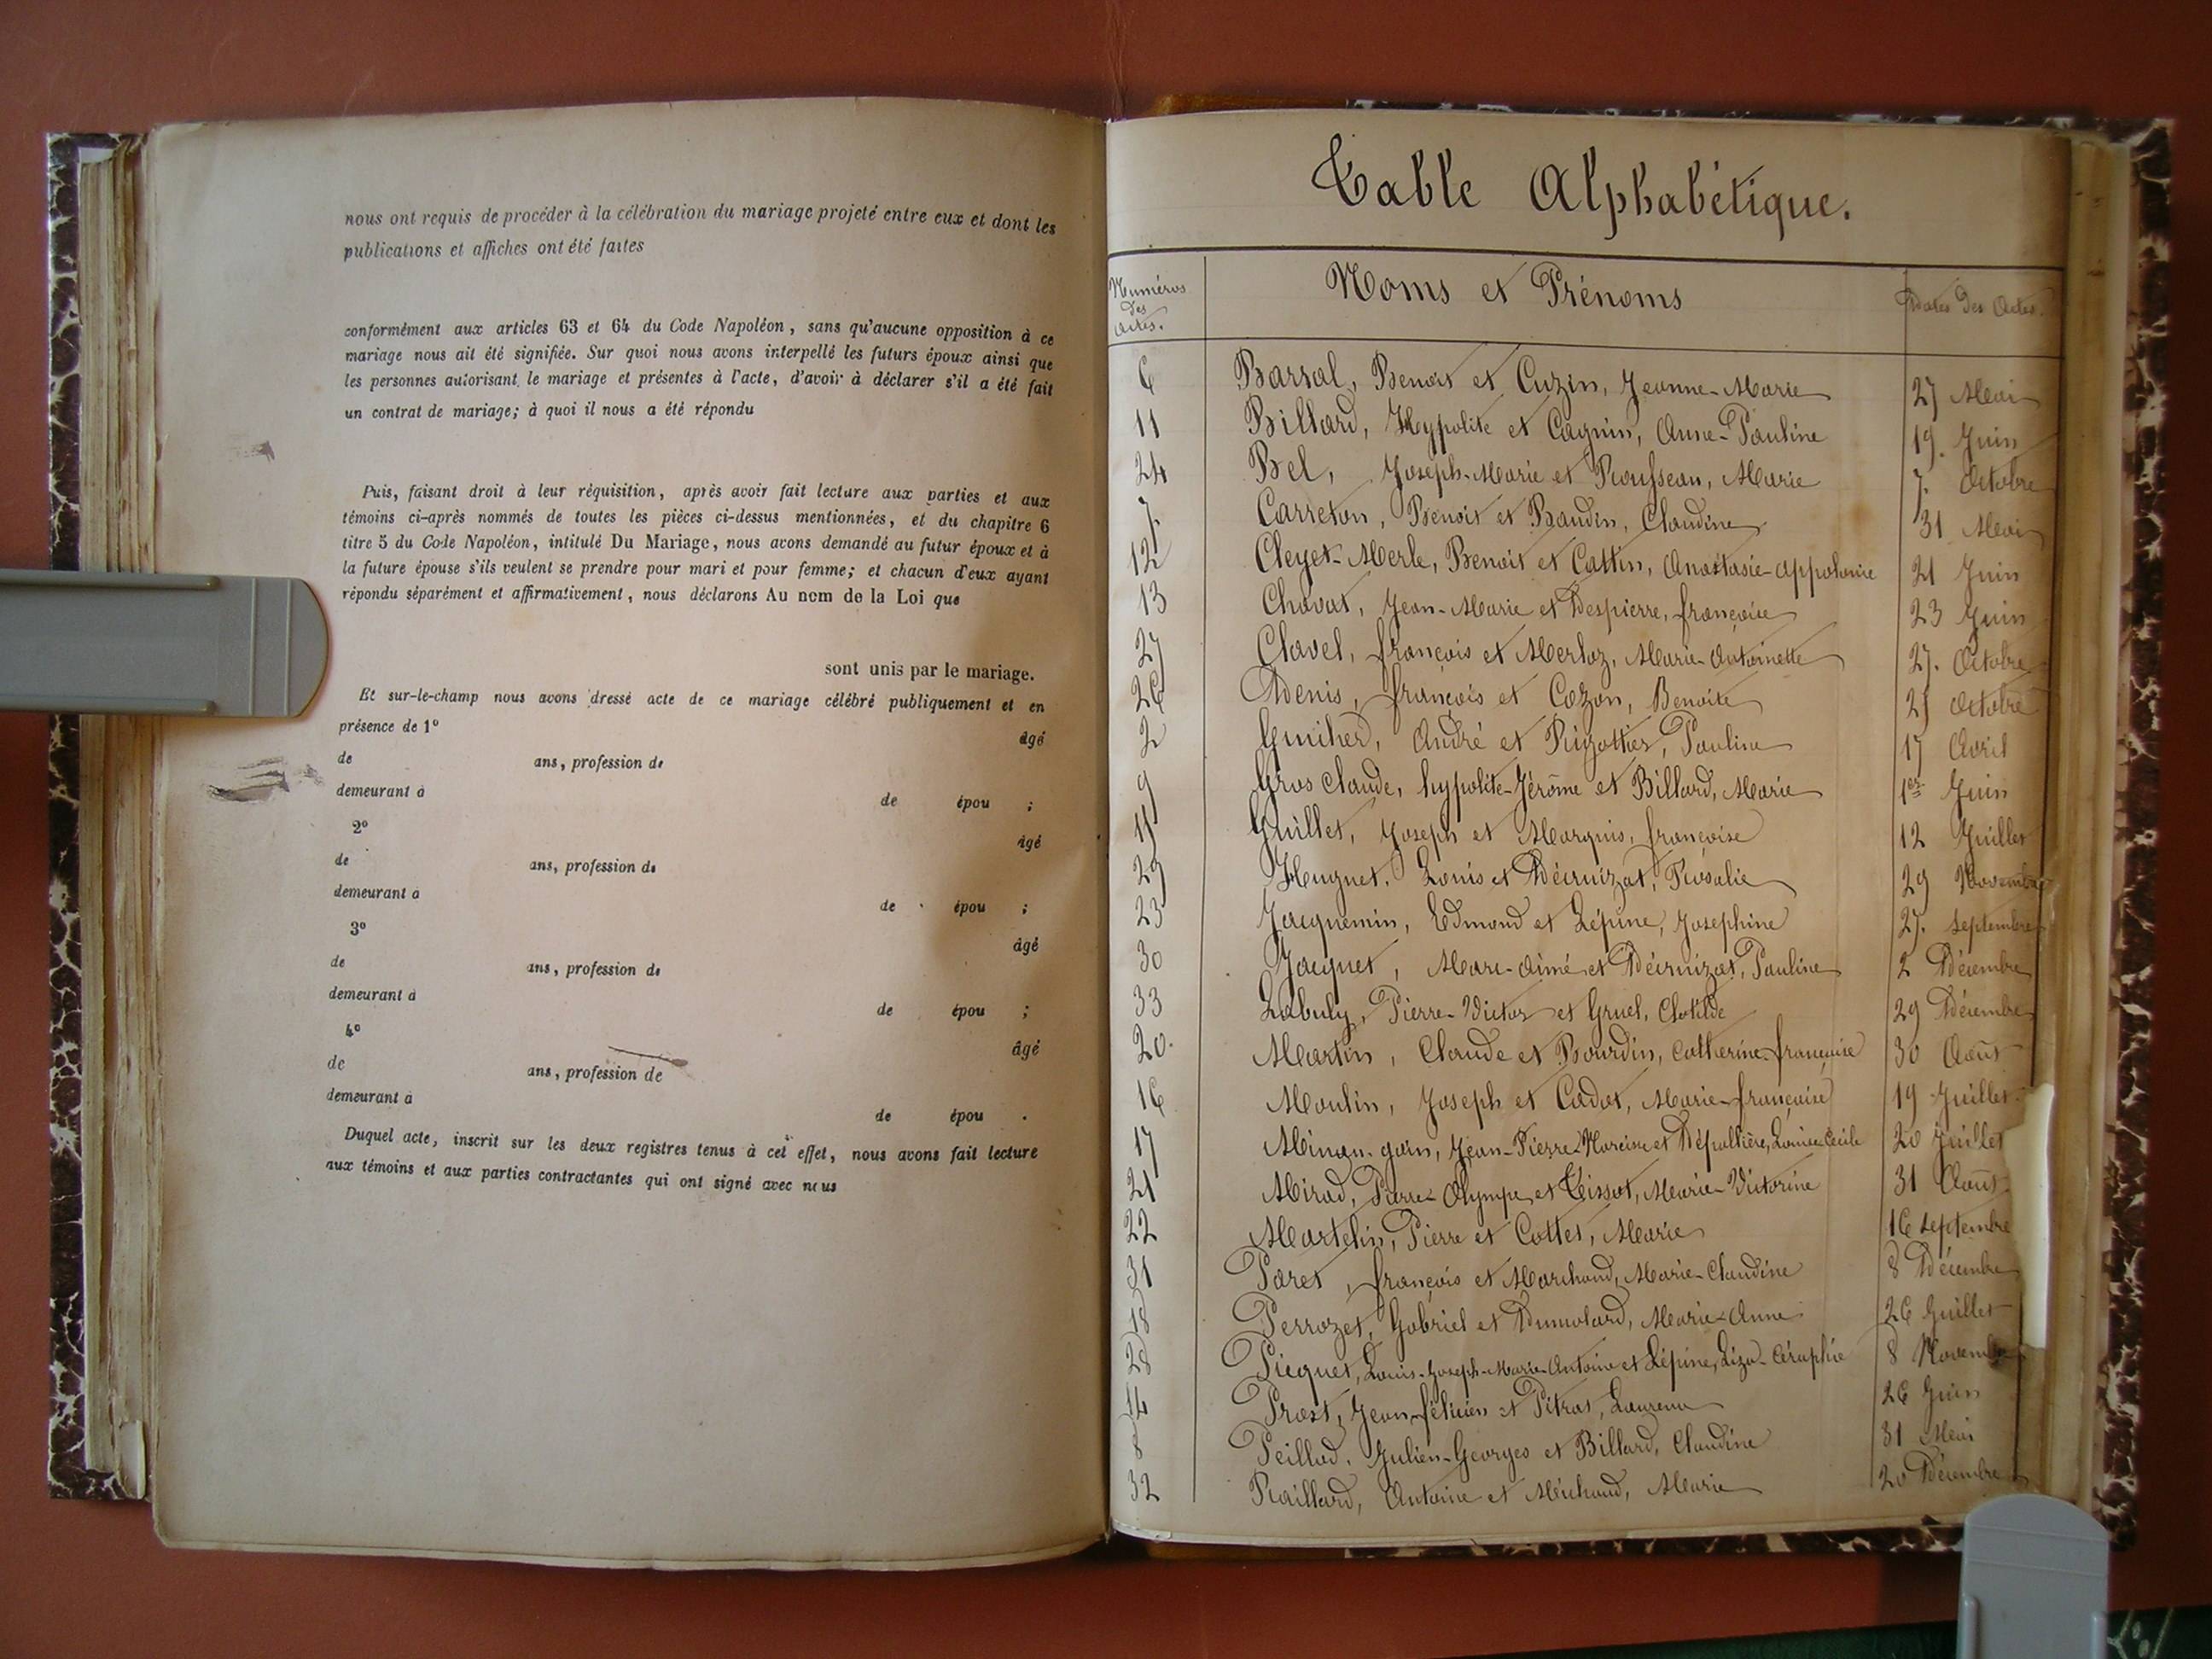 nous ont requis de procéder à la célébration du mariage projeté entre eux et dont les
publications et affiches ont été faites
conformément aux articles 63 et 64 du Code Napoléon, sans qu'aucune opposition à ce
mariage nous ait été signifiée. Sur quoi nous avons interpellé les futurs époux ainsi que
les personnes autorisant le mariage et présentes à l'acte, d'avoir à déclarer s'il a été fait
un contrat de mariage; à quoi il nous a été répondu
Puis, faisant droit à leur réquisition, après avoir fait lecture aux parties et aux
témoins ci-après nommés de toutes les pièces ci-dessus mentionnées, et du chapitre 6
titre 5 du Code Napoléon, intitulé Du Mariage, nous avons demandé au futur époux et à
la future épouse s'ils veulent se prendre pour mari et pour femme; et chacun d'eux ayant
répondu séparément et affirmativement, nous déclarons Au nom de la Loi que
sont unis par le mariage.
Et sur-le-champ nous avons dressé acte de ce mariage célébré publiquement et en
présence de 1º âgé
de ans, profession de
demeurant à de épou ;
2º âgé
de ans, profession de
demeurant à de épou ;
3º âgé
de ans, profession de
demeurant à de épou ;
4º âgé
de ans, profession de
demeurant à de épou .
Duquel acte, inscrit sur les deux registres tenus à cet effet, nous avons fait lecture
aux témoins et aux parties contractantes qui ont signé avec nous
Table Alphabétique.
Numéros des actes. Noms et Prénoms Dates des Actes.
6 Barral, Benoit et Cuzin, Jeanne-Marie 27 Mai
11 Billard, Hypolite et Cagnin, Anne-Pauline 19. Juin
24 Bel, Joseph-Marie et Rousseau, Marie 7. Octobre
7. Carreton, Benoit et Baudin, Claudine 31 Mai
12 Cleyet-Merle, Benoit et Cattin, Anastasie-appolonie 21 Juin
13 Chavat, Jean-Marie et Despierre, françoise 23 Juin
27 Clavel, françois et Merloz, Marie-Antoinette 27. Octobre
26 Denis, françois et Cozon, Benoite 25 Octobre
2 André et Pauline 17 Avril
9 Gros Claude, hypolite-Jérôme et Billard, Marie 1er Juin
15 Guillet, Joseph et Marquis, françoise 12 Juillet
29 Huguet, Louis et Décruizat, Rosalie 29 Novembre
23 Jacquemin, Edmond et Lépine, Josephine 27. septembre
30 Jacquet, Marc-aimé et Décruizat, Pauline 2 Décembre
33 Labuly, Pierre-Victor et Gruel, Clotilde 29 Décembre
20. Martin, Claude et Bourdin, Catherine-françoise 30 Août
16 Moulin, Joseph et Cadot, Marie-françoise 19 Juillet
17 Jean-Pierre-Narcisse et Dépollière, Louise-Cécile 20 Juillet
21 Mirad, Pierre-Olympe et Tissot, Marie-Victorine 31 Août
22 Martelin, Pierre et Cottet, Marie 16 septembre
31 Paret, françois et Marchand, Marie-Claudine 8 Décembre
18 Perrozet, Gabriel et Dumolard, Marie-Anne 26 Juillet
28 Picquet, Louis-Joseph-Marie-Antoine et Lépine, Liza-Céraphie 8 Novembre
14 Prost, Jean-félicien et Pitrat, 26 Juin
8 Peillod, Julien-Georges et Billard, Claudine 31 Mai
32 Raillard, Antoine et Michaud, Marie 20 Décembre